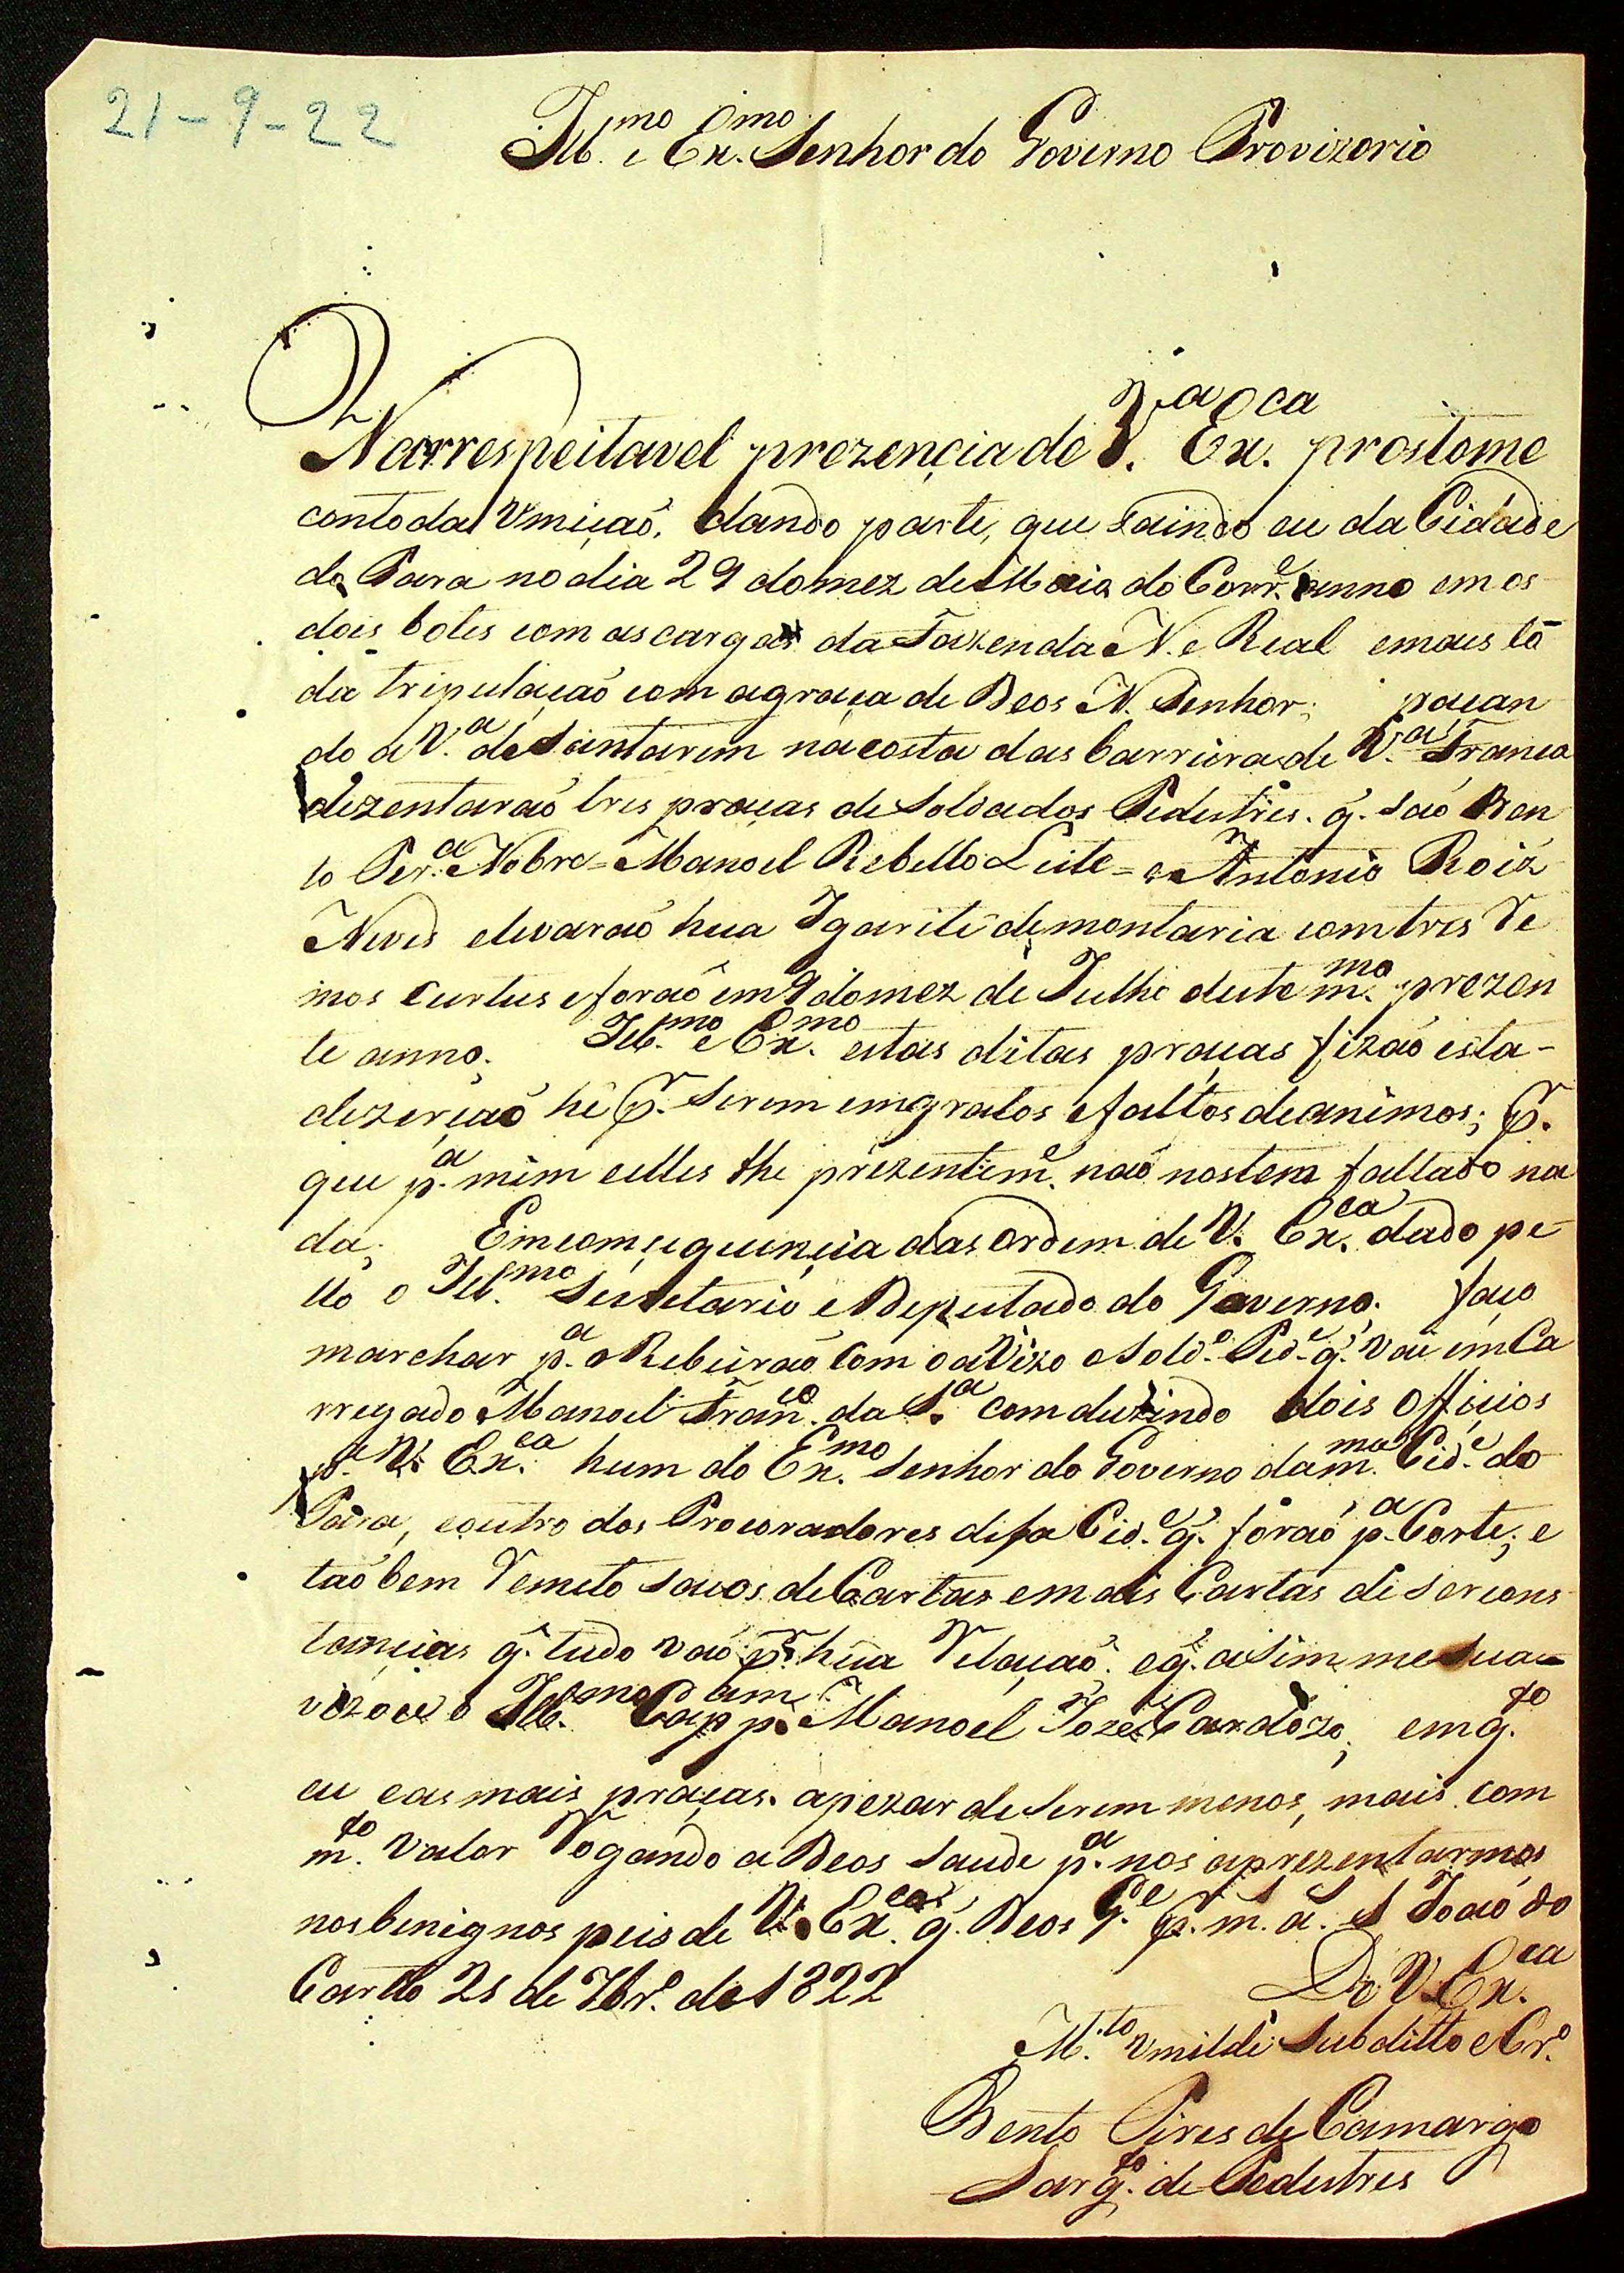 21-9-22
Ill.mo e Ex.mo Senhor do Governo Provizorio
Narrespeitavel prezençia de V.a Ex.ca prostome
com toda Vmiçaõ, dando parte, que saindo eu da Cidade
do Para no dia 29 do mez de Maio do Corr.e anno em os
dois botes com as cargas da Fazenda N. e Real emais to
da tripulaçaõ com agraça de Deos N. Senhor; paçan
do a V.a de Santarem na costa das barriera de V.a Franca
dezentaraõ tres praças de Soldados Pedestres. q̃. saõ Ben
to Per.a Nobre = Manoel Rebello Leite = e Antonio Roiz
Neves elevaraõ hua Igarite de montaria com tres Re
mos Curtus eforaõ em 9 do mez de Julho deste m.mo prezen
te anno; Ill.mo e Ex.mo estas ditas praças fizaõ esta-
dezerçaõ hê p.r serem emgratos efaltos de animos; p.r
que p.a mim eelles the prezentem.e naõ nostem faltado na
da; Emcomseguençia das ordem de V. Ex.ca dado pe
llo o Ill.mo Secretario e Deputado do Governo; faço
marchar p.a o Ribeiraõ Com o aVizo o Sold.o Ped.e q̃. vai emCa
rregado Manoel Fran.co da S.a comduzindo dois Offiçios
p.a V. Ex.ca hum do Ex.mo Senhor do Governo da m.ma Cid.e do
Pára, eoutro dos Procoradores desa Cid.e q̃. foraõ p.a Corte; e
taõbem Remeto sacos de Cartas emais Cartas de sercons
tançias q̃. tudo vaõ p.r hũa Relaçaõ. eq̃. asim me
o Ill.mo Cap.am p. Manoel Joze Cardozo; emq.to
eu eas mais praças. apezar de serem menos, mais com
m.to Valor Rogando a Deos saude p.a nos aprezentarmos
nos benignos peis de V. Ex.ca q̃. Deos G.e p.r m.s a.s S Joaõ do
21 de 7br.o de 1822
De V. Ex.ca
M.to Vmilde Subditto e Cr.o
Bento Pires de Camargo
Sarg.to de Pedestres